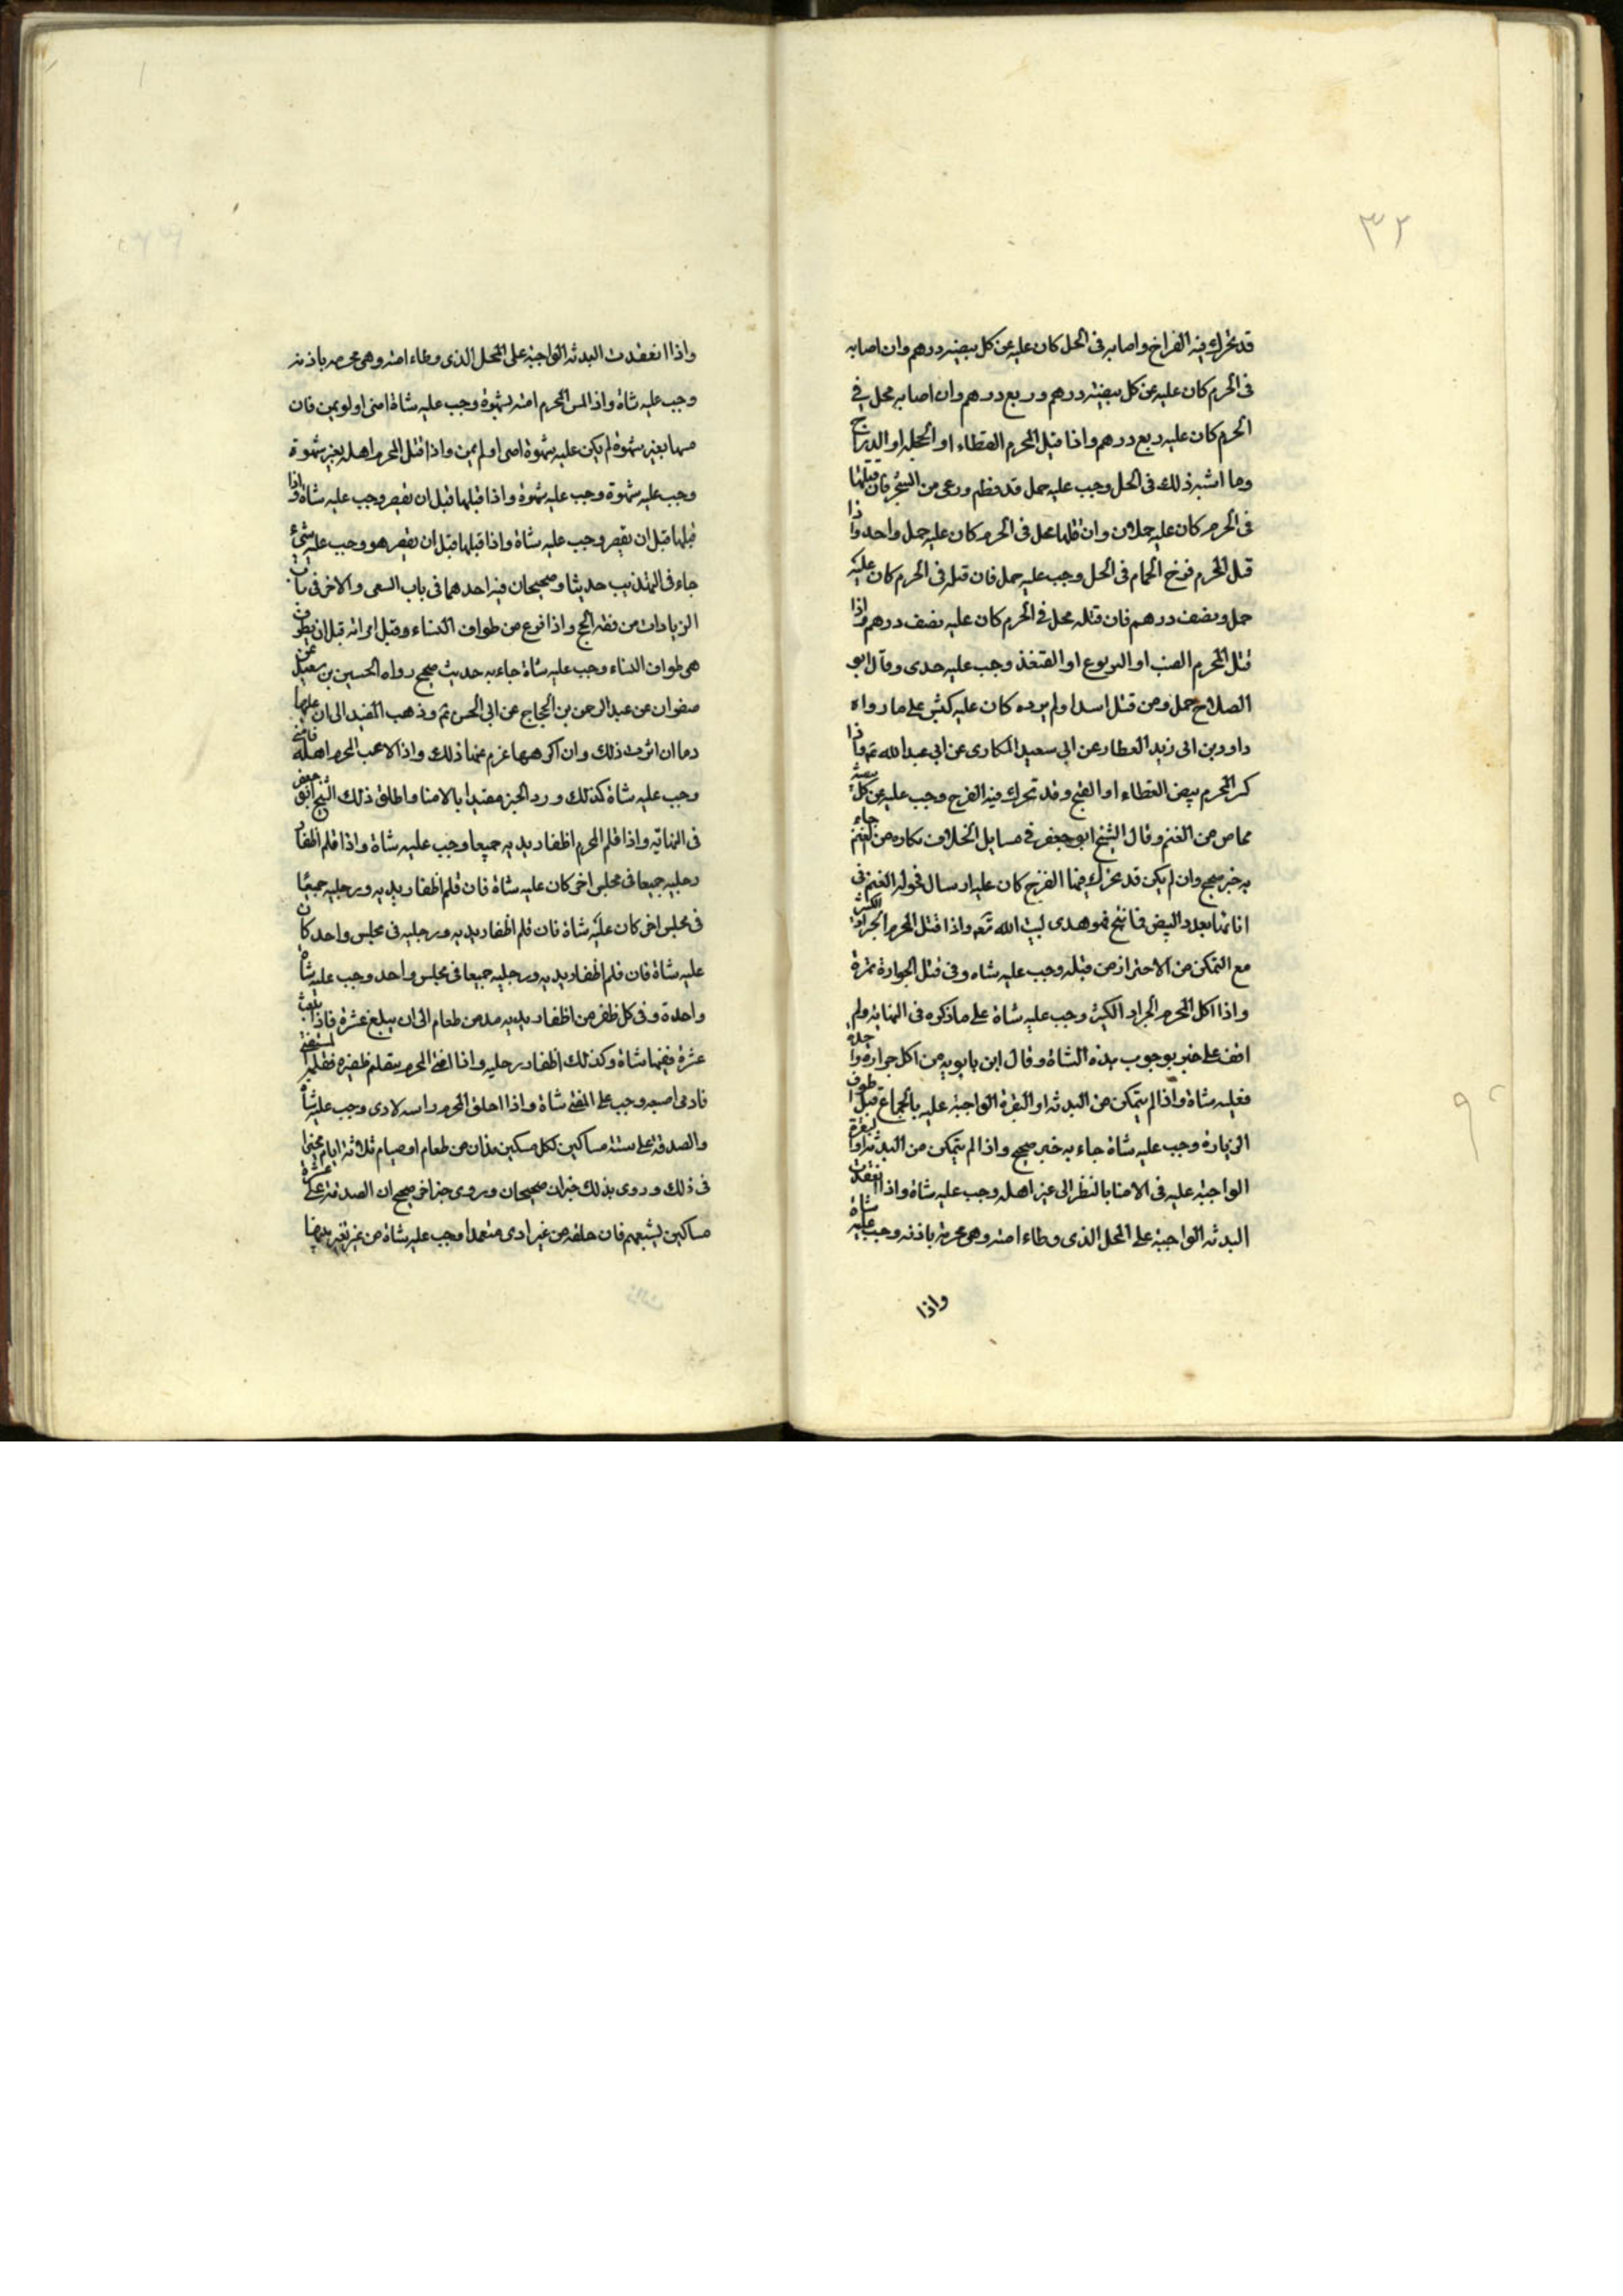 ٣٢
قد تحرك فيه الفراخ واصابه فى الحل كان عليه عن كل بيضه درهم وان اصابه
فى الحرم كان عليه عن كل بيضة درهم وربع درهم وان اصابه محل فى
الحرم كان عليه ربع درهم واذا قتل المحرم القطاء او الحجله او الدراج
وما اشبه ذلك فى الحل وجب عليه حمل قد فطم ورعى من الشجر فان قتلها
فى الحرم كان عليه حملان وان قتلها محل فى الحرم كان عليه حمل واحد واذا
قتل المحرم فرخ الحمام فى الحل وجب عليه حمل فان قتله فى الحرم كان عليه
حمل ونصف درهم فان قتله محل فى الحرم كان عليه نصف درهم واذا
قتل المحرم الضب او اليربوع او القنفذ وجب عليه جدى وقال ابو
الصلاح حمل ومن قتل اسدا ولم يرده كان عليه كبش على ما رواه
داود بن ابى زيد العطار عن ابى سعيد المكارى عن ابى عبد الله ع واذا
كسر المحرم بيض القطاء او القبج وقد تحرك فيه الفرخ وجب عليه عن كل بيضة
مخاض من الغنم وقال الشيخ ابو جعفر فى مسايل الخلاف بكاره من الغنم جاء
به خبر صحيح وان لم يكن قد تحرك فيها الفرخ كان عليه ارسال فحوله الغنم فى
اناثها بعدد البيض فما نتج فهو هدى لبيت الله تعه واذا قتل المحرم الجراد الكثير
مع التمكن من الاحتراز من قتله وجب عليه شاه وفى قتل الجرادة تمرة
واذا اكل المحرم الجراد الكثير وجب عليه شاة على ما ذكره فى النهايه ولم
اقف على خبر بوجوب هذه الشاة وقال ابن بابويه من اكل جراده واحدة
فعليه شاة واذا لم يتمكن من البدنه او البقرة الواجبة عليه بالجماع قبل طواف
الزيارة وجب عليه شاة جاء به خبر صحيح واذا لم يتمكن من البدنه او البقرة
الواجبة عليه فى الامنا بالنظر الى غير اهله وجب عليه شاة واذا انعقدت
البدنه الواجبة على المحل الذى وطاء امته وهى محرمة باذنه وجب عليه شاة
واذا
واذا انعقدت البدنه الواجبة على المحل الذى وطاء امته وهى محرمه باذنه
وجب عليه شاة واذا لمس المحرم امته بشهوة وجب عليه شاة امنى او لم يمن فان
مسها بغير شهوة لم يكن عليه شهوة امنى او لم يمن واذا قبل المحرم اهله بغير شهوة
وجب عليه شهوة وجب عليه شهوة واذا قبلها قبل ان تقصر وجب عليه شاة واذا
قبلها قبل ان يقصر وجب عليه شاة واذا قبلها قبل ان يقصر هو وجب عليه شئ
جاء فى التهذيب حديثا وصحيحان فيه احدهما فى باب السعى والاخر فى باب
الزيادات من فقه الحج واذا فرغ من طواف النساء وقبل امراته قبل ان يطوف
هى طواف النساء وجب عليه شاة جاء به حديث صحيح رواه الحسين بن سعيد عن
صفوان عن عبد الرحمن بن الحجاج عن ابى الحسن ع وذهب المفيد الى ان عليها
دما ان اثرت ذلك وان اكرهها غرم عنها ذلك واذا لاعب المحرم اهله فامنى
وجب عليه شاة كذلك ورد الخبر مقيدا بالامنا واطلق ذلك الشيخ ابو جعفر
فى النهاية واذا قلم المحرم اظفار يديه جميعا وجب عليه شاة واذا قلم اظفار
رجليه جميعا فى مجلس اخر كان عليه شاة فان قلم اظفار يديه ورجليه جميعا
فى مجلس اخر كان عليه شاة فان قلم اظفار يديه ورجليه فى مجلس واحد كان
عليه شاة فان قلم اظفار يديه ورجليه جميعا فى مجلس واحد وجب عليه شاه
واحدة وفى كل ظفر من اظفار يديه مد من طعام الى ان يبلغ عشرة فاذا بلغت
عشرة ففيها شاة وكذلك اظفار رجليه واذا افتى المحرم بتقليم ظفيره فقلم المستفتى
فادمى اصبعه وجب على المفتى شاة واذا احلق المحرم راسه لاذى وجب عليه شاة
والصدقة على ستة مساكين لكل مسكين مدان من طعام او صيام ثلاثة ايام مخيرا
فى ذلك وروى بذلك خبران صحيحان وروى خبر اخر صحيح ان الصدقة على عشرة
مساكين يشبعهم فان حلقه من غير اذى متعمدا وجب عليه شاة من غير تخيير